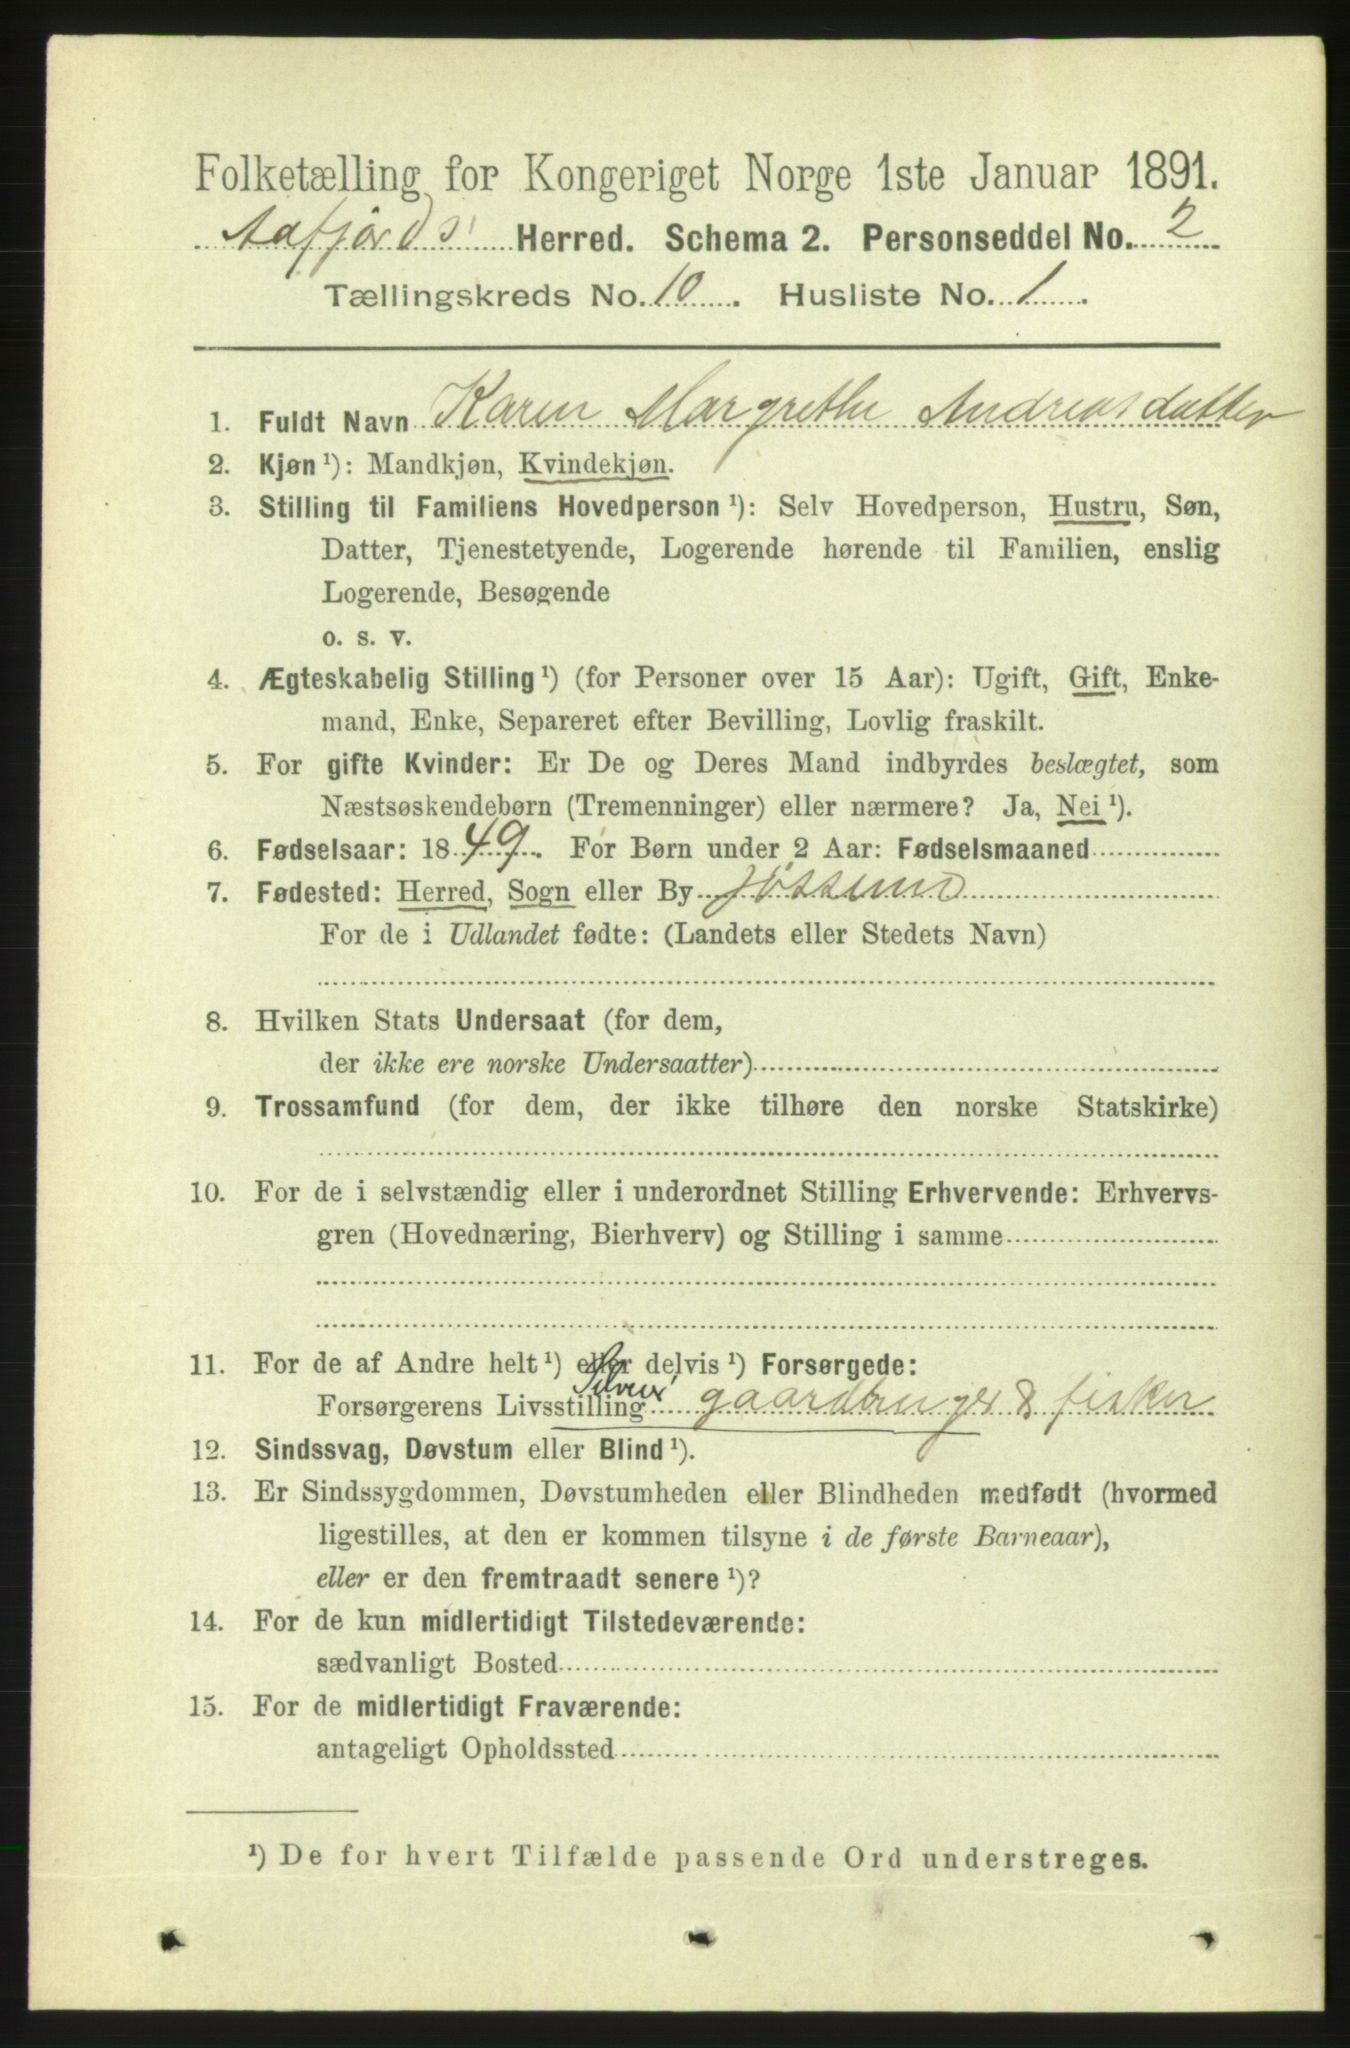 Folketælling for Kongeriget Norge 1ste Januar 1891.
Aafjords Herred. Schema 2. Personseddel No. 2
Tællingskreds No. 10. Husliste No. 1.
1. Fuldt Navn Karen Margrethe Andreasdatter
2. Kjøn ¹): Mandkjøn, Kvindekjøn.
3. Stilling til Familiens Hovedperson ¹): Selv Hovedperson, Hustru, Søn,
Datter, Tjenestetyende, Logerende hørende til Familien, enslig
Logerende, Besøgende
o. s. v.
4. Ægteskabelig Stilling ¹) (for Personer over 15 Aar): Ugift, Gift, Enke-
mand, Enke, Separeret efter Bevilling, Lovlig fraskilt.
5. For gifte Kvinder: Er De og Deres Mand indbyrdes beslægtet, som
Næstsøskendebørn (Tremenninger) eller nærmere? Ja, Nei ¹).
6. Fødselsaar: 1849. For Børn under 2 Aar: Fødselsmaaned
7. Fødested: Herred, Sogn eller By Jøssund
For de i Udlandet fødte: (Landets eller Stedets Navn)
8. Hvilken Stats Undersaat (for dem,
der ikke ere norske Undersaatter)
9. Trossamfund (for dem, der ikke tilhøre den norske Statskirke)
10. For de i selvstændig eller i underordnet Stilling Erhvervende: Erhvervs-
gren (Hovednæring, Bierhverv) og Stilling i samme
11. For de af Andre helt ¹) eller delvis ¹) Forsørgede:
Forsørgerens Livsstilling gaardbruger & fisker
12. Sindssvag, Døvstum eller Blind ¹).
13. Er Sindssygdommen, Døvstumheden eller Blindheden medfødt (hvormed
ligestilles, at den er kommen tilsyne i de første Barneaar),
eller er den fremtraadt senere ¹)?
14. For de kun midlertidigt Tilstedeværende:
sædvanligt Bosted
15. For de midlertidigt Fraværende:
antageligt Opholdssted
¹) De for hvert Tilfælde passende Ord understreges.